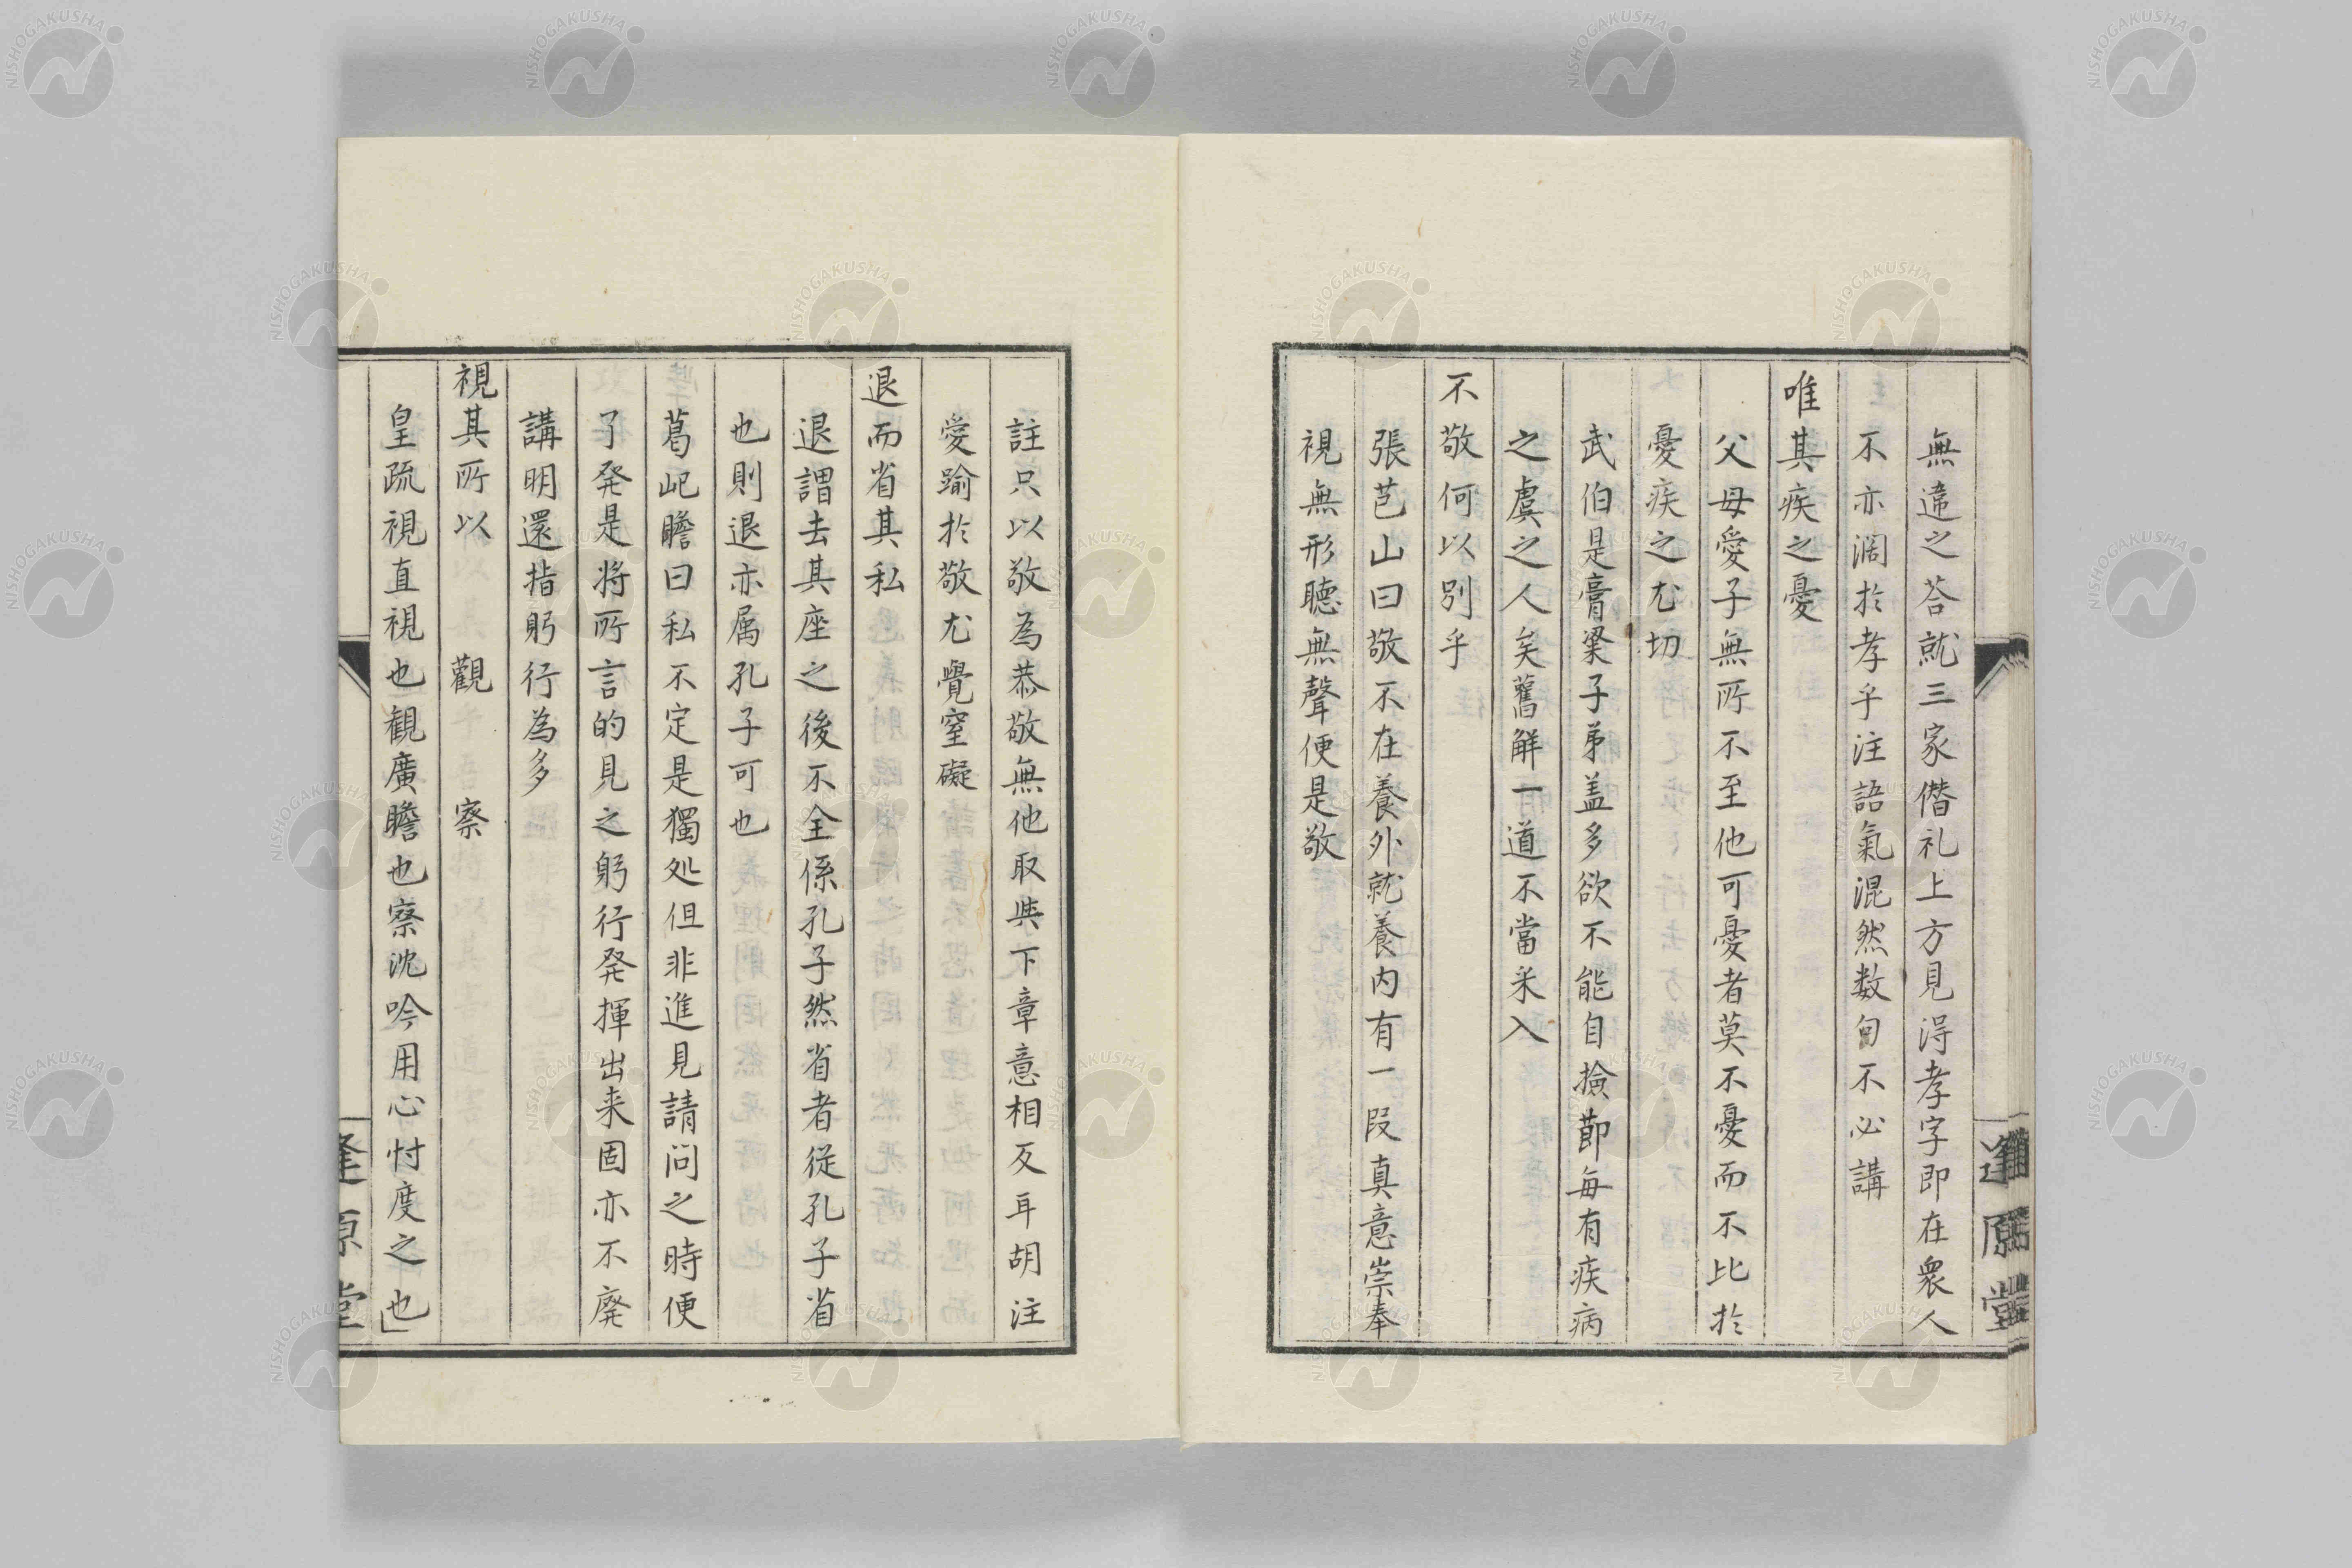 無違之荅就三家僭礼上方見得孝字即在衆人
不亦濶於孝乎注語氣混然数旬不必講
唯其疾之憂
父母愛子無所不至他可憂者莫不憂而不比於
憂疾之尤切
武伯是膏粱子弟盖多欲不能自撿節每有疾病
之虞之人矣舊解一道不當采入
不敬何以別乎
張芑山曰敬不在養外就養内有一段真意崇奉
視無形聴無聲便是敬
逢原堂
註只以敬為恭敬無他取與下章意相反耳胡注
愛踰於敬尤覺窒礙
退而省其私
退謂去其座之後不全係孔子然省者從孔子省
也則退亦属孔子可也
葛屺瞻曰私不定是獨処但非進見請问之時便
了発是将所言的見之躬行発揮出来固亦不廃
講明還指躬行為多
視其所以　觀　察
皇疏視直視也観廣瞻也察沈吟用心忖度之也」
逢原堂
NISHOGAKUSHA